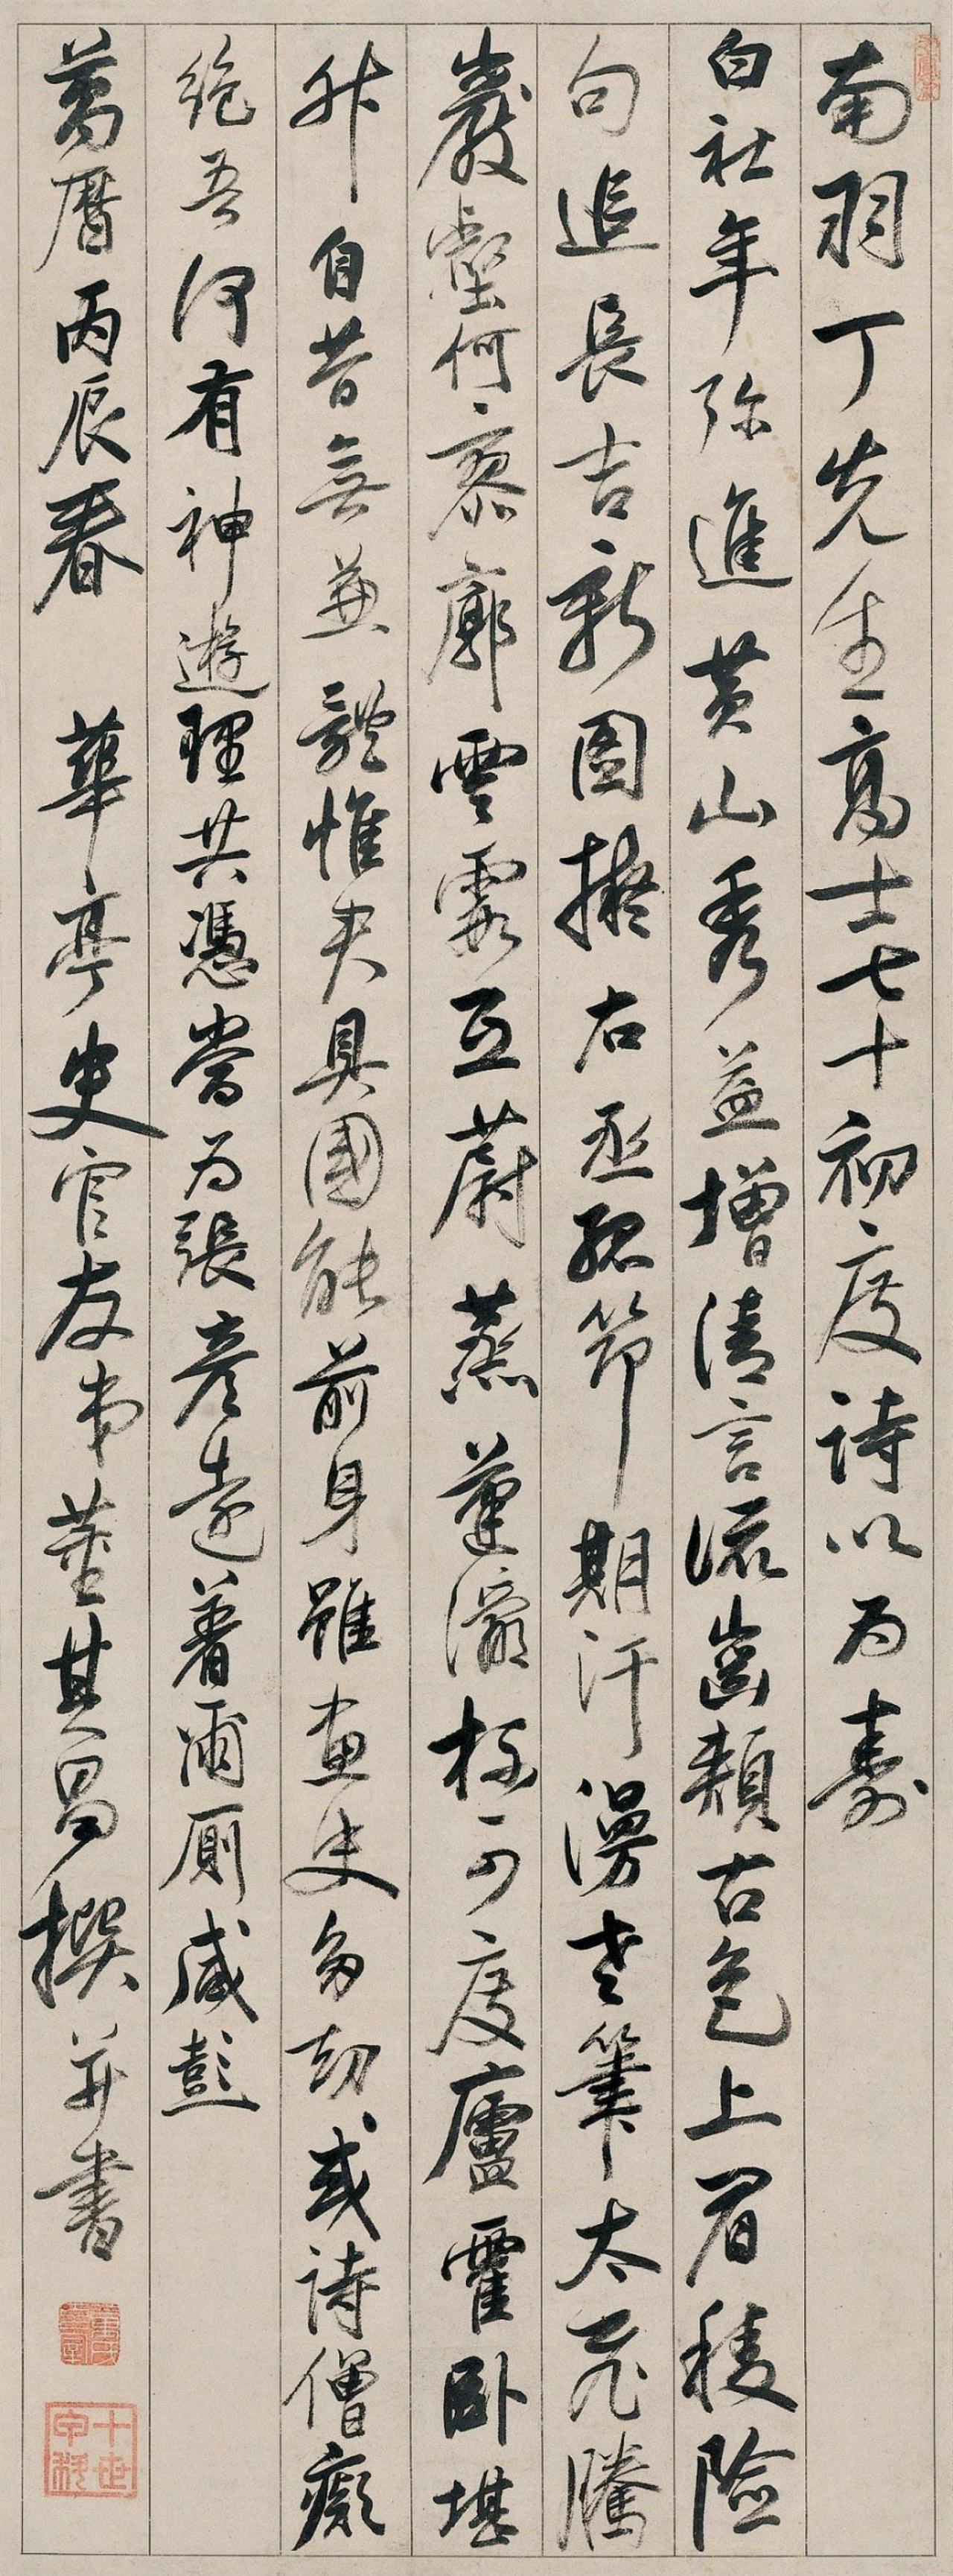 南羽丁先生高士七十初度詩以為壽
白社年彌進黃山秀益增清言流齒頰古色上眉稜險
句追長吉新圖擬右丞孤笻期汗漫老筆太飛騰
巖壑何寥廓雲霞互蔚蒸蓬瀛株可度廬霍臥堪
升自昔無兼體惟夫具國能前身雖畫史多劫或詩僧癡
絕吾何有神遊理共憑嘗為張彥遠著爾厠咸彭
萬曆丙辰春 華亭史官友弟董其昌撰并書